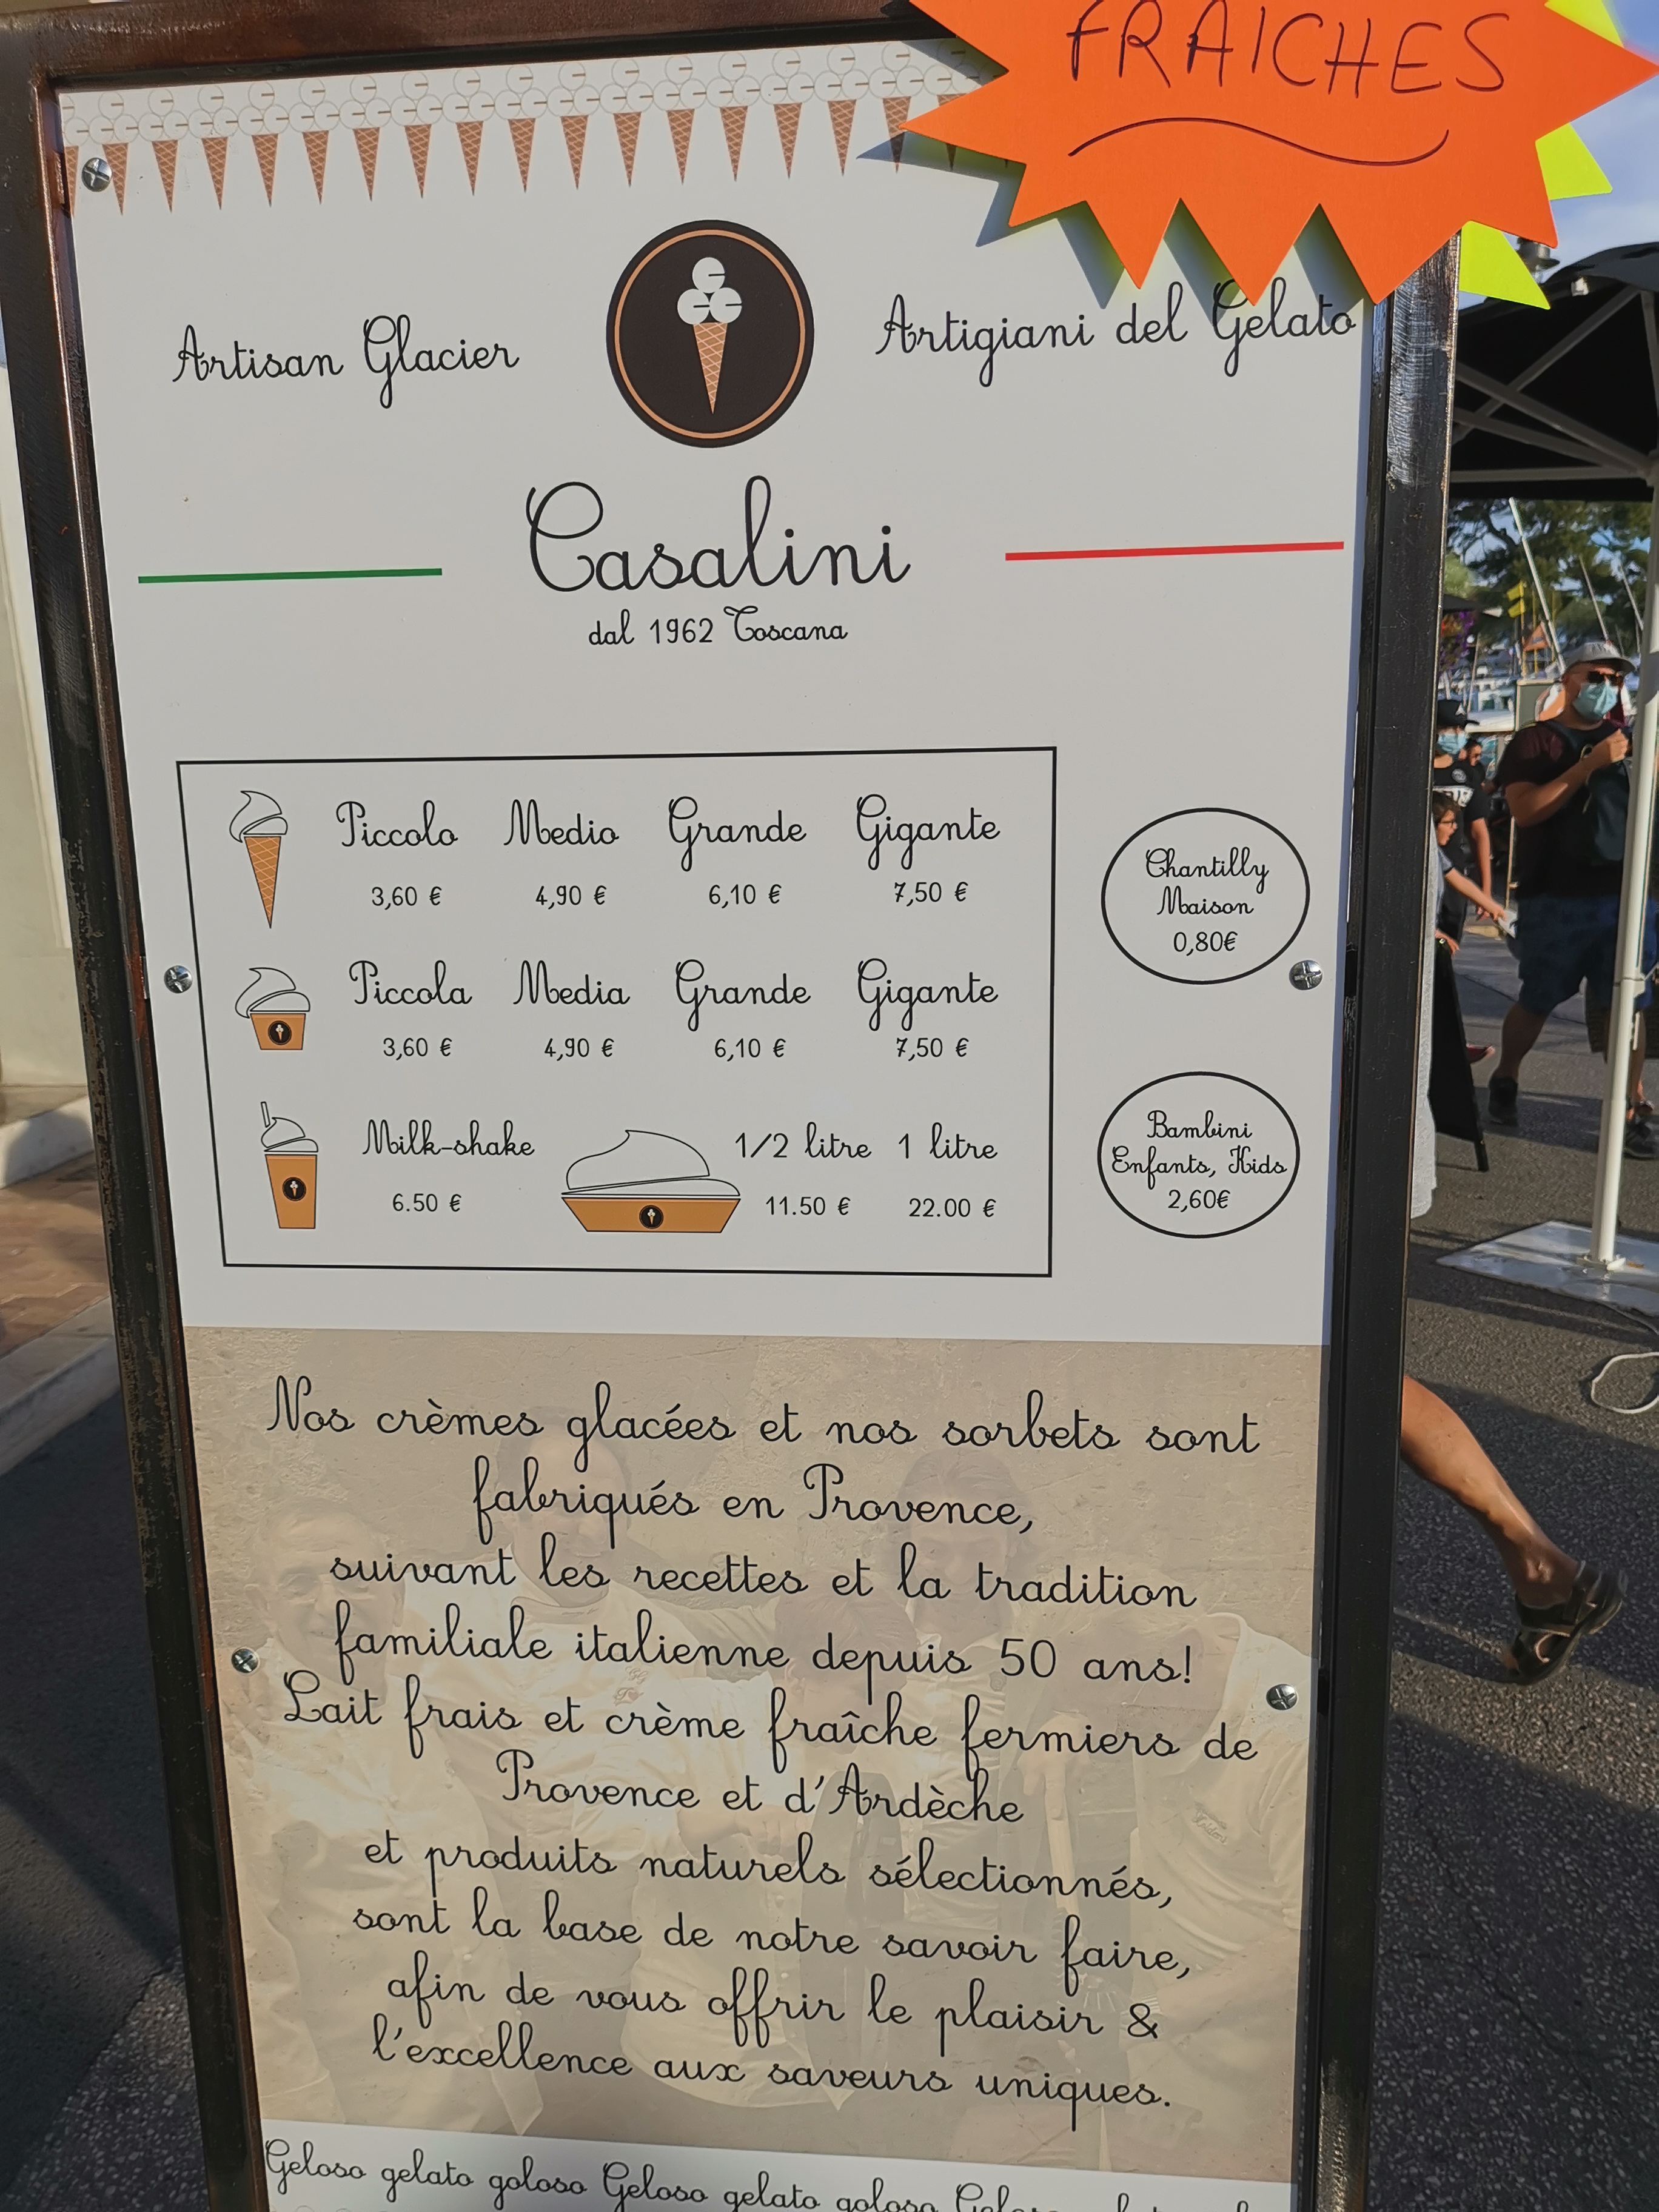 FRAICHES
Artisan Glacier
Artigiani del Gelato
Casalini
dal 1962 Toscana
Piccolo Medio Grande Gigante
3,60 € 4,90 € 6,10 € 7,50 €
Piccola Media Grande Gigante
3,60 € 4,90 € 6,10 € 7,50 €
Milk-shake 1/2 litre 1 litre
6.50 € 11.50 € 22.00 €
Chantilly
Maison
0,80€
Bambini
Enfants, Kids
2,60€
Nos crèmes glacées et nos sorbets sont
fabriqués en Provence,
suivant les recettes et la tradition
familiale italienne depuis 50 ans!
Lait frais et crème fraîche fermiers de
Provence et d'Ardèche
et produits naturels sélectionnés,
sont la base de notre savoir faire,
afin de vous offrir le plaisir &
l'excellence aux saveurs uniques.
Geloso gelato goloso Geloso gelato goloso